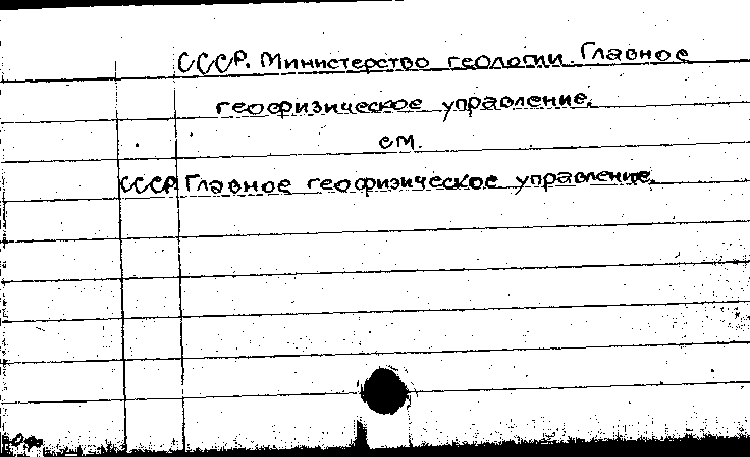 СССР. Министерство геологии. Главное
геофизическое управление.
см.
СССР. Главное геофизическое управление.